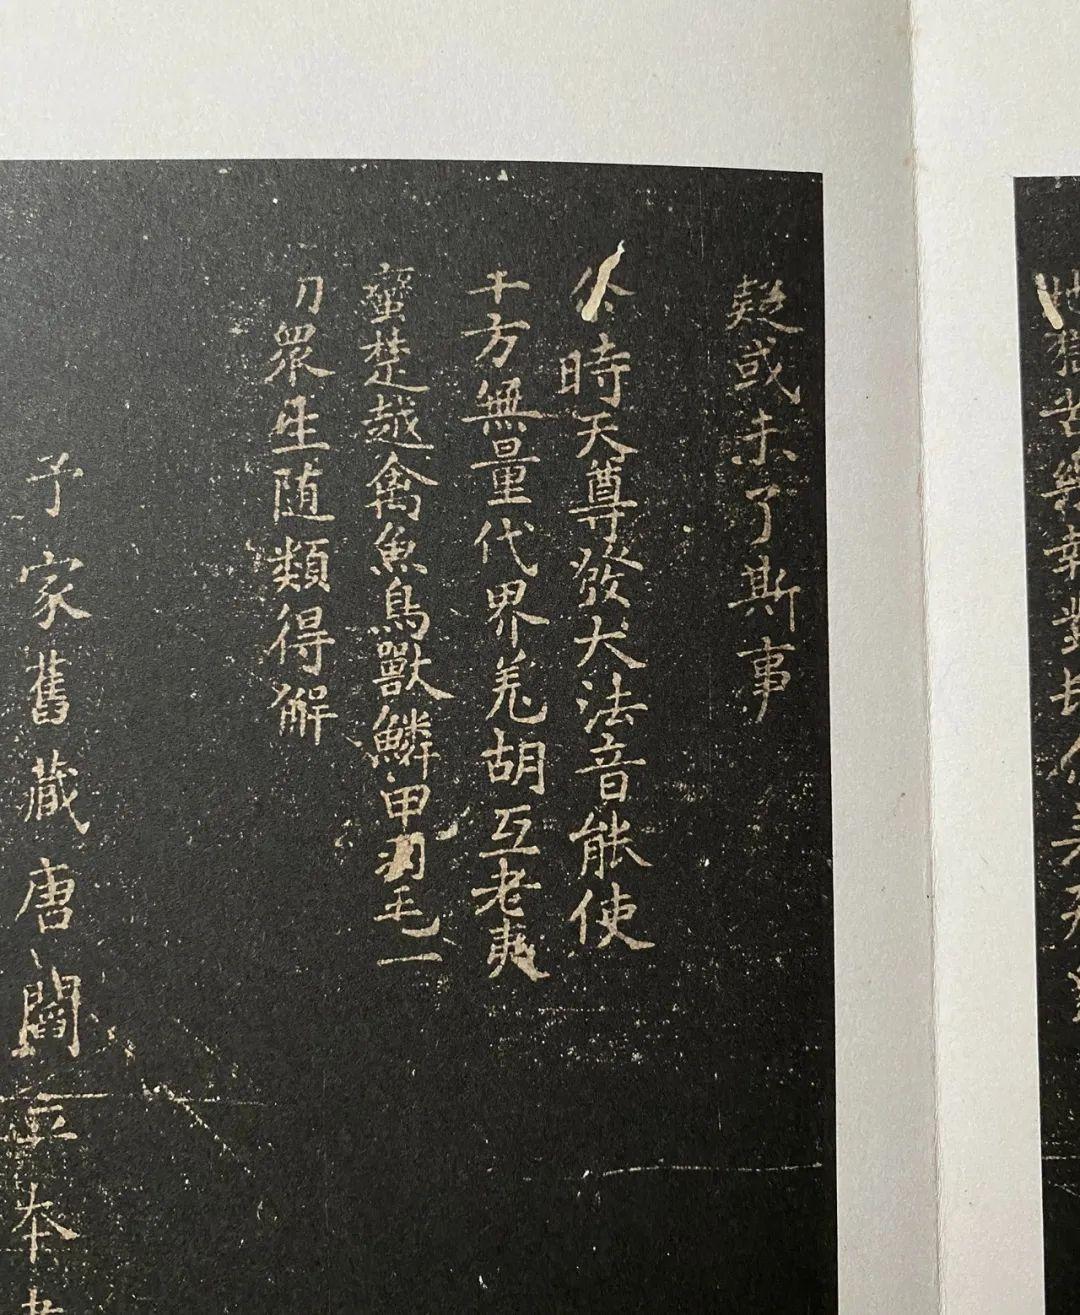 地獄苦
疑或未了斯事
尒時天尊發大法音能使
十方無量代界羌胡互老夷
蠻楚越禽魚鳥獸鱗甲羽毛一
切眾生随類得解
予家舊藏唐閻立本